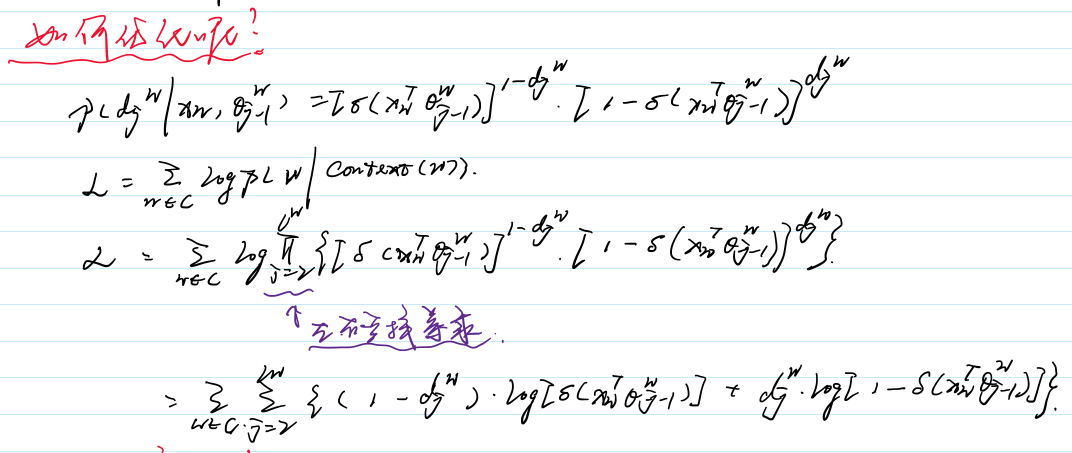 如何优化呢?
p(dⱼʷ | xw, θⱼ₋₁ʷ) = [σ(xwᵀ θⱼ₋₁ʷ)]^(1-dⱼʷ) · [1 - σ(xwᵀ θⱼ₋₁ʷ)]^(dⱼʷ)
L = Σ_(w∈C) log p(w | Context(w)).
L = Σ_(w∈C) log Π_(j=2)^(lʷ) {[σ(xwᵀ θⱼ₋₁ʷ)]^(1-dⱼʷ) · [1 - σ(xwᵀ θⱼ₋₁ʷ)]^(dⱼʷ)}.
↑
= Σ_(w∈C) · Σ_(j=2)^(lʷ) {(1 - dⱼʷ) · log[σ(xwᵀ θⱼ₋₁ʷ)] + dⱼʷ · log[1 - σ(xwᵀ θⱼ₋₁ʷ)]}.